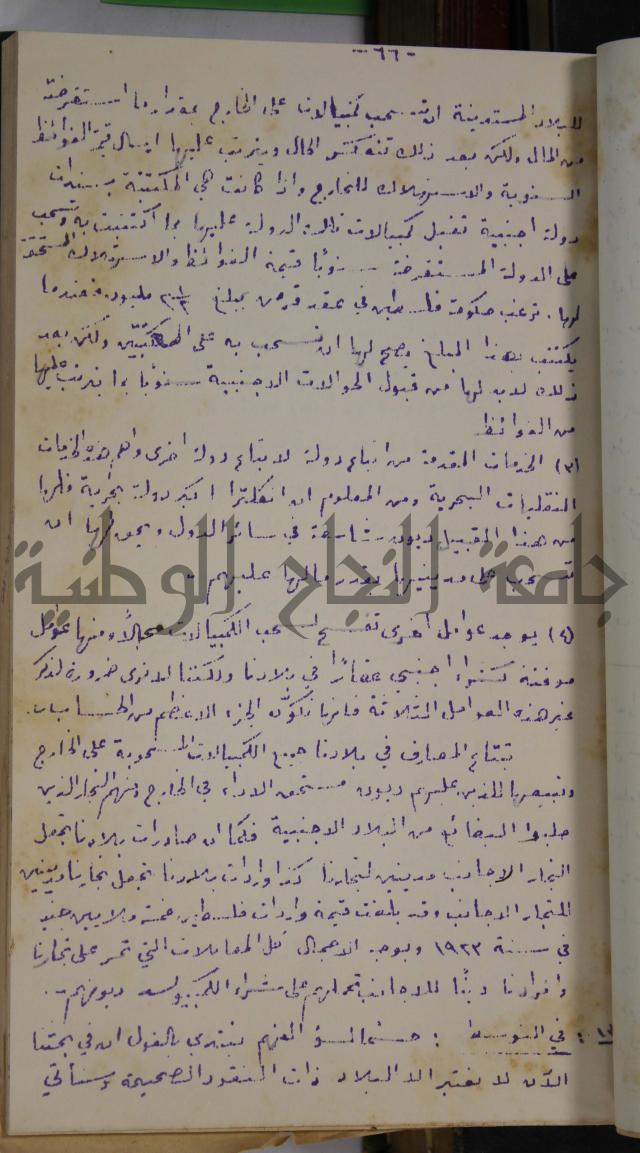 -٦٦-
للبلاد المستدينة ان تسحب كمبيالات على الخارج بمقدار ما استقرضته
من المال ولكن بعد ذلك تنعكس الحال ويترتب عليها ارسال قيمة الفوائظ
السنوية والاستهلاك للخارج واذا كانت هي المكتتبة بسندات
دولة اجنبية تقبل كمبيالات تلك الدولة عليها بما اكتتبت به وتسحب
على الدولة المستقرضة سنويًا قيمة الفوائظ والاستهلاك المستحقة
لها. ترغب حكومة فلسطين في عقد قرض بمبلغ ٢½ مليون فعندما
يكتتب بهذا المبلغ يصح لها ان تسحب به على المكتتبين ولكن بعد
ذلك لابد لها من قبول الحوالات الاجنبية سنويًا بما يترتب عليها
من الفوائظ
(٣) الخدمات المقدمة من اتباع دولة لاتباع دولة اخرى واهم هذه الخدمات
النقليات البحرية ومن المعلوم ان انكلترا اكبر دولة بحرية فلها
من هذا القبيل ديون شاسعة في سائر الدول ويجوز لها ان
تسحب على مدينيها بقدر مالها عليهم.
جامعة النجاح الوطنية
(٤) يوجد عوامل اخرى تفسح لسحب الكمبيالات مجالًا ومنها عوامل
موقتة كشراء اجنبي عقارًا في بلادنا ولكننا لا نرى ضرورة لذكر
غير هذه العوامل الثلاثة فانها تكوّن الجزء الاعظم من الحسابات.
تبتاع المصارف في بلادنا جميع الكمبيالات المسحوبة على الخارج
وتبيعها للذين عليهم ديون مستحقة الاداء في الخارج ومنهم التجار الذين
جلبوا البضائع من البلاد الاجنبية فكما ان صادرات بلادنا تجعل
التجار الاجانب مدينين لتجارنا كذا واردات بلادنا تجعل تجارنا مدينين
للتجار الاجانب وقد بلغت قيمة واردات فلسطين خمسة ملايين جنيه
في سنة ١٩٢٣ ويوجد الاعمال كل المعاملات التي تمر على تجارنا
وافرادنا دينًا للاجانب تحملهم على شراء الكمبيو لسد ديونهم.
١٣: في التوسط: حسمًا لسوء الفهم نبتدي بالقول ان في بحثنا
الآن لا نعتبر الا البلاد ذات النقود الصحيحة وسنأتي